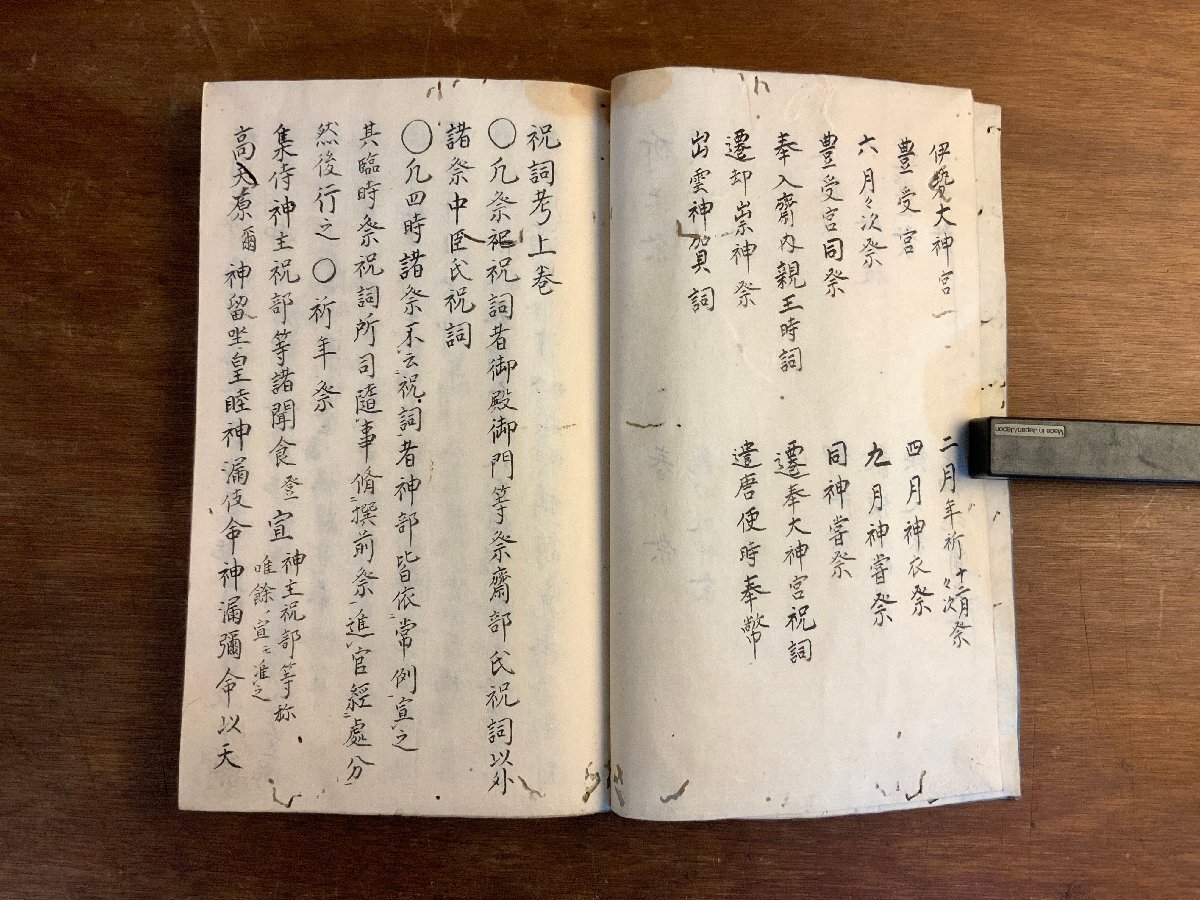 伊勢大神宮　二月年祈十二月々次祭
豊受宮　四月神衣祭
六月々次祭　九月神嘗祭
豊受宮同祭　同神嘗祭
奉入齋内親王時詞　遷奉大神宮祝詞
遷却崇神祭　遣唐使時奉幣
出雲神賀詞
祝詞考上巻
〇凡祭祀祝詞者御殿御門等祭齋部氏祝詞以外
諸祭中臣氏祝詞
〇凡四時諸祭不云祝詞者神部皆依常例宣之
其臨時祭祝詞所司隨事脩撰前祭進官經處分
然後行之〇祈年祭
集侍神主祝部等諸聞食登宣神主祝部等称
唯餘宣准之
高天原爾神留坐皇睦神漏伎命神漏彌命以天
Made in Japan/Japon